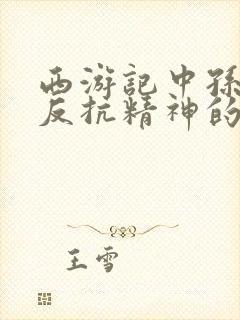 西游记中孙
反抗精神的
王雪